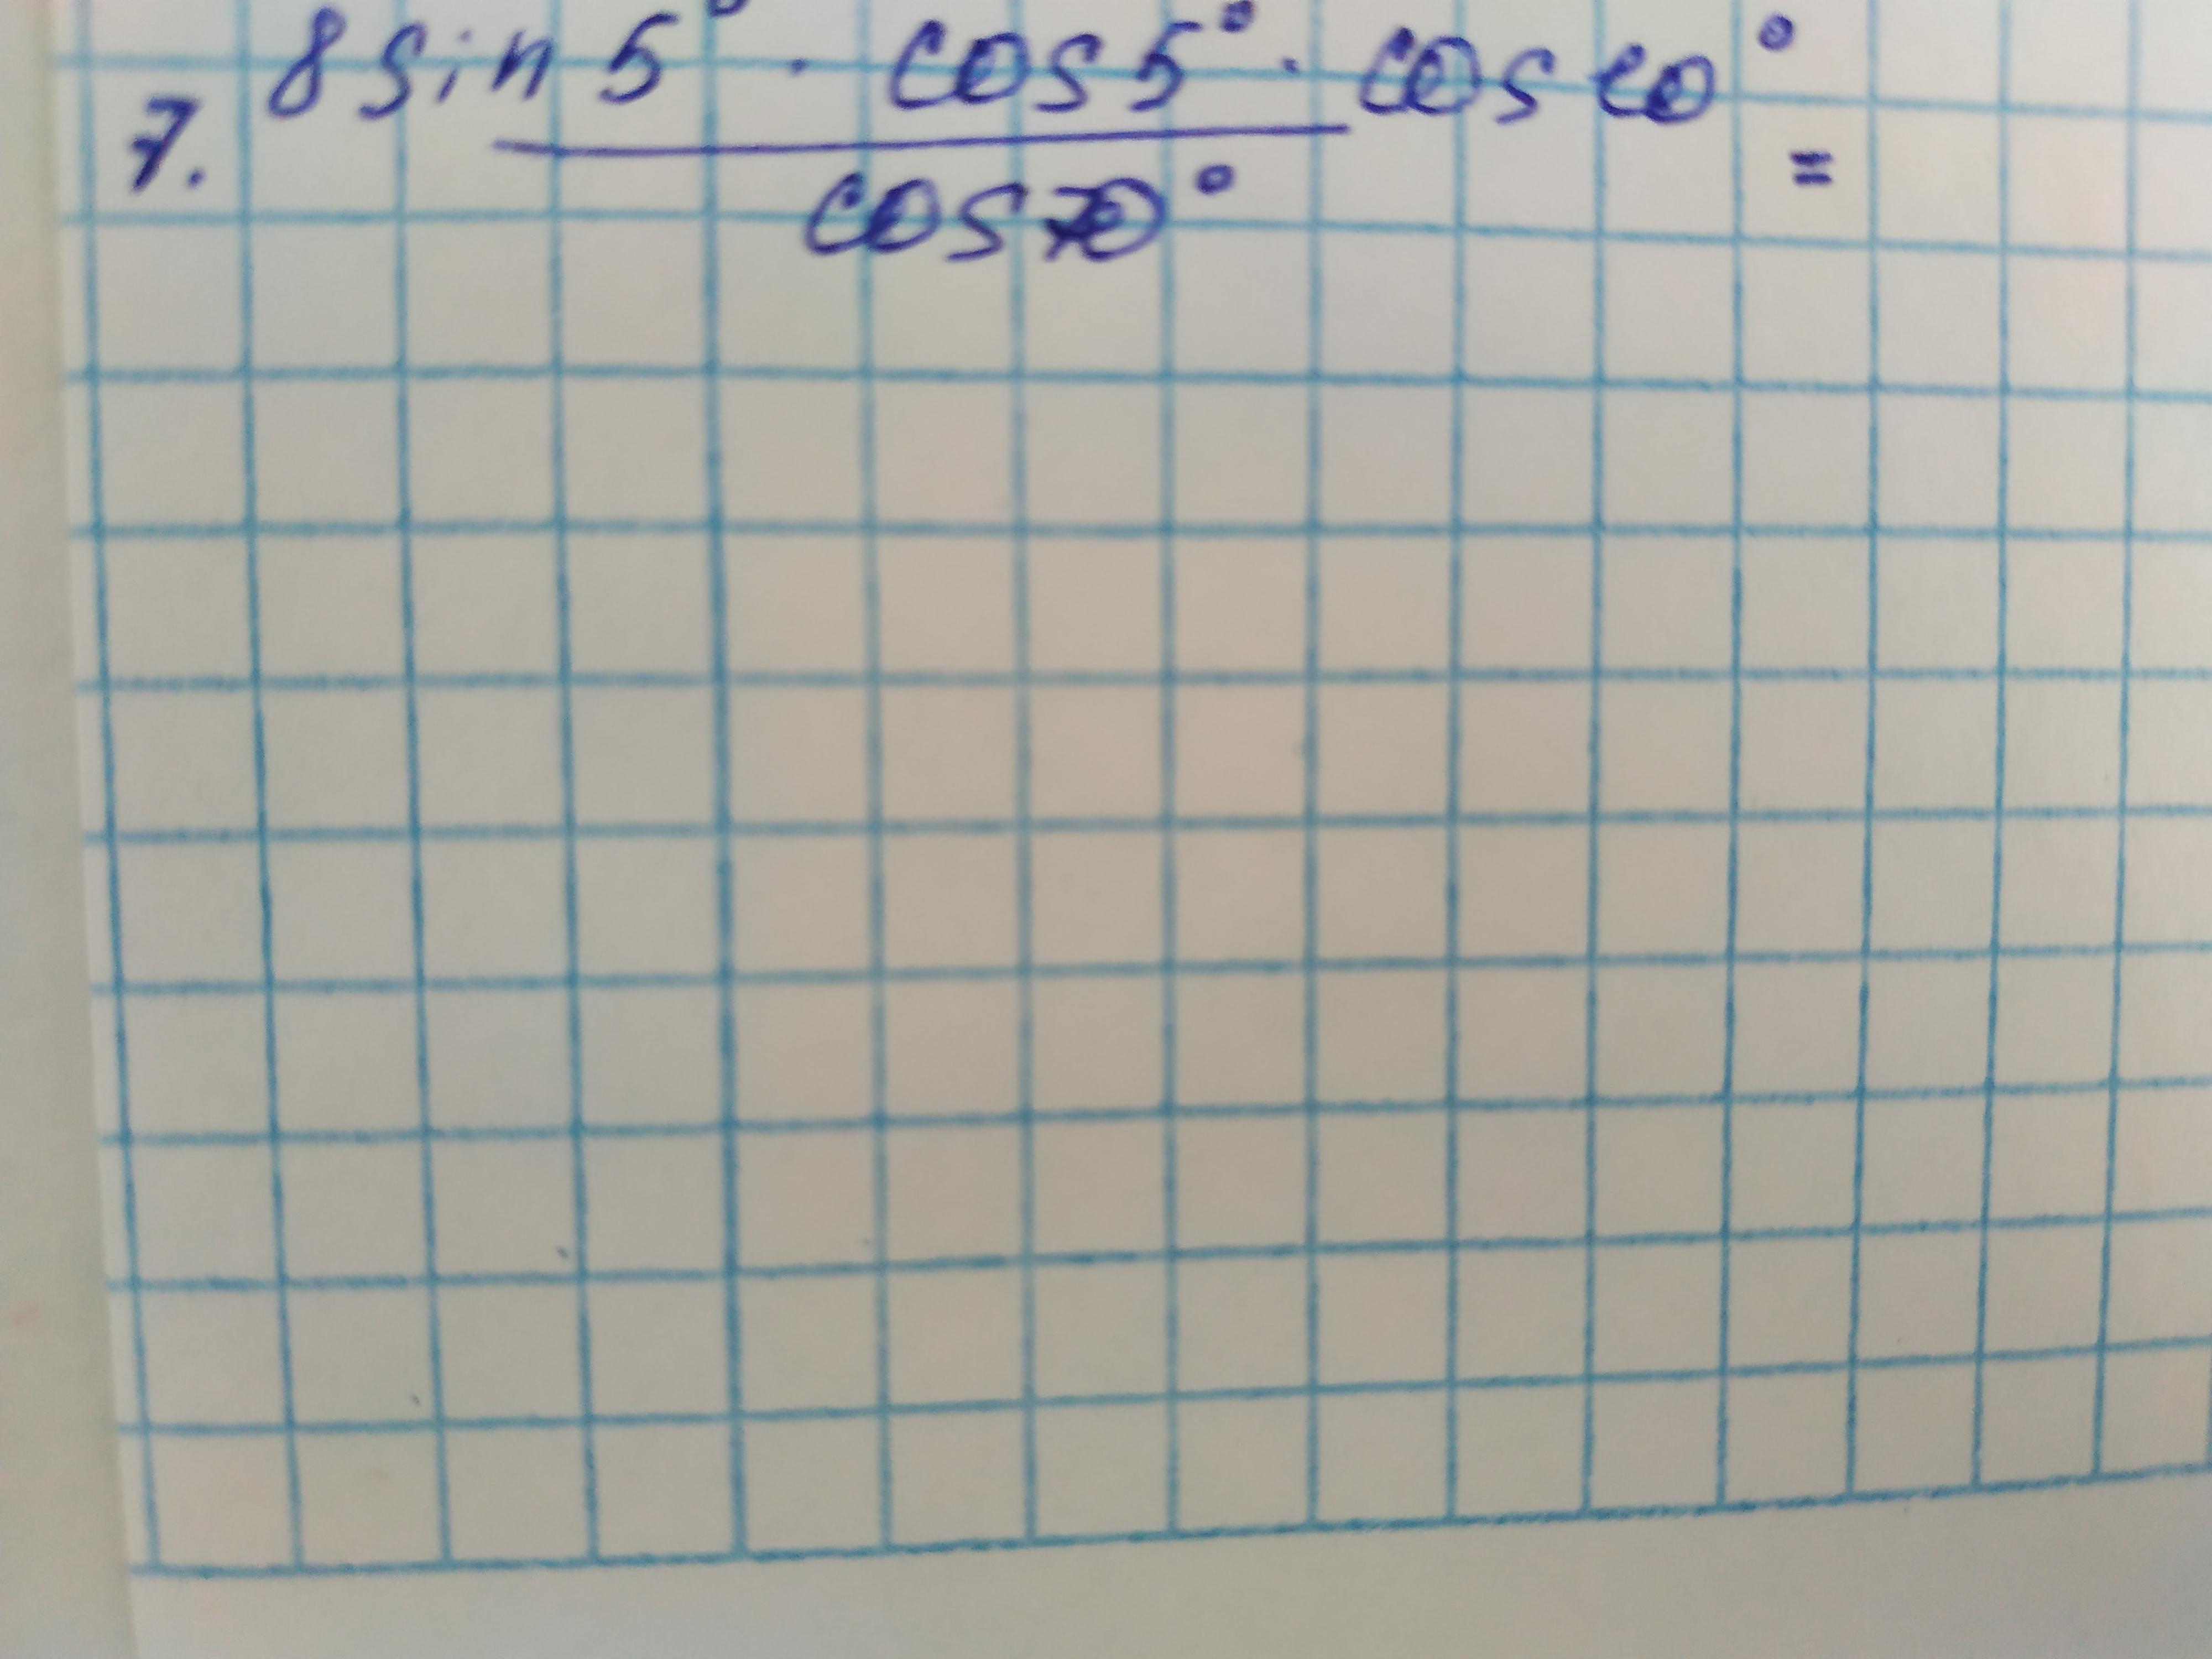 7. 8 sin 5° · cos 5° · cos 10° =
cos 70°